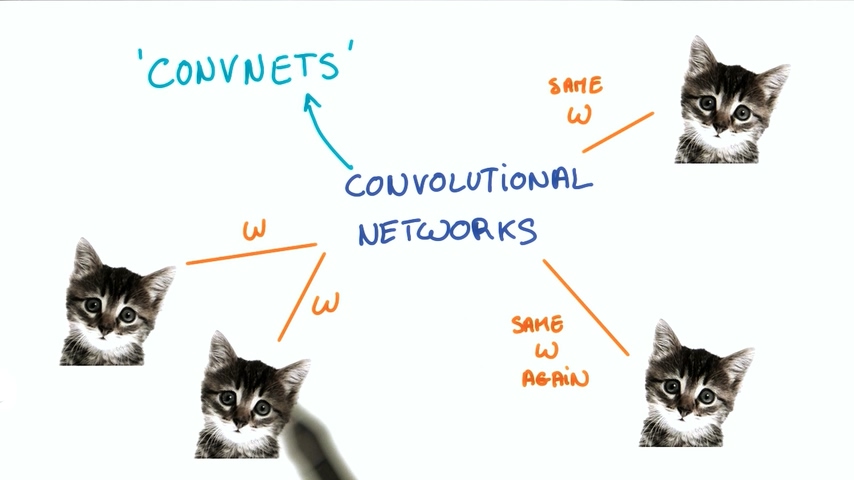 'CONVNETS'
SAME
W
CONVOLUTIONAL
NETWORKS
W
W
SAME
W
AGAIN